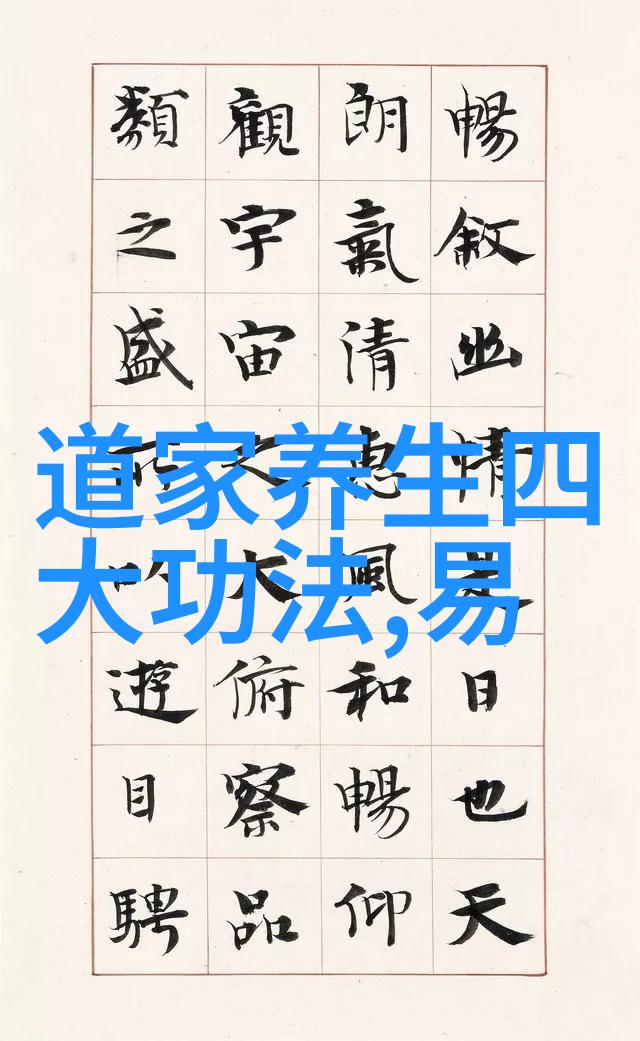 暢敘幽情是日也天
朗氣清惠風和暢仰
觀宇宙之大俯察品
類之盛所以遊目騁
道家养生四
大功法,易